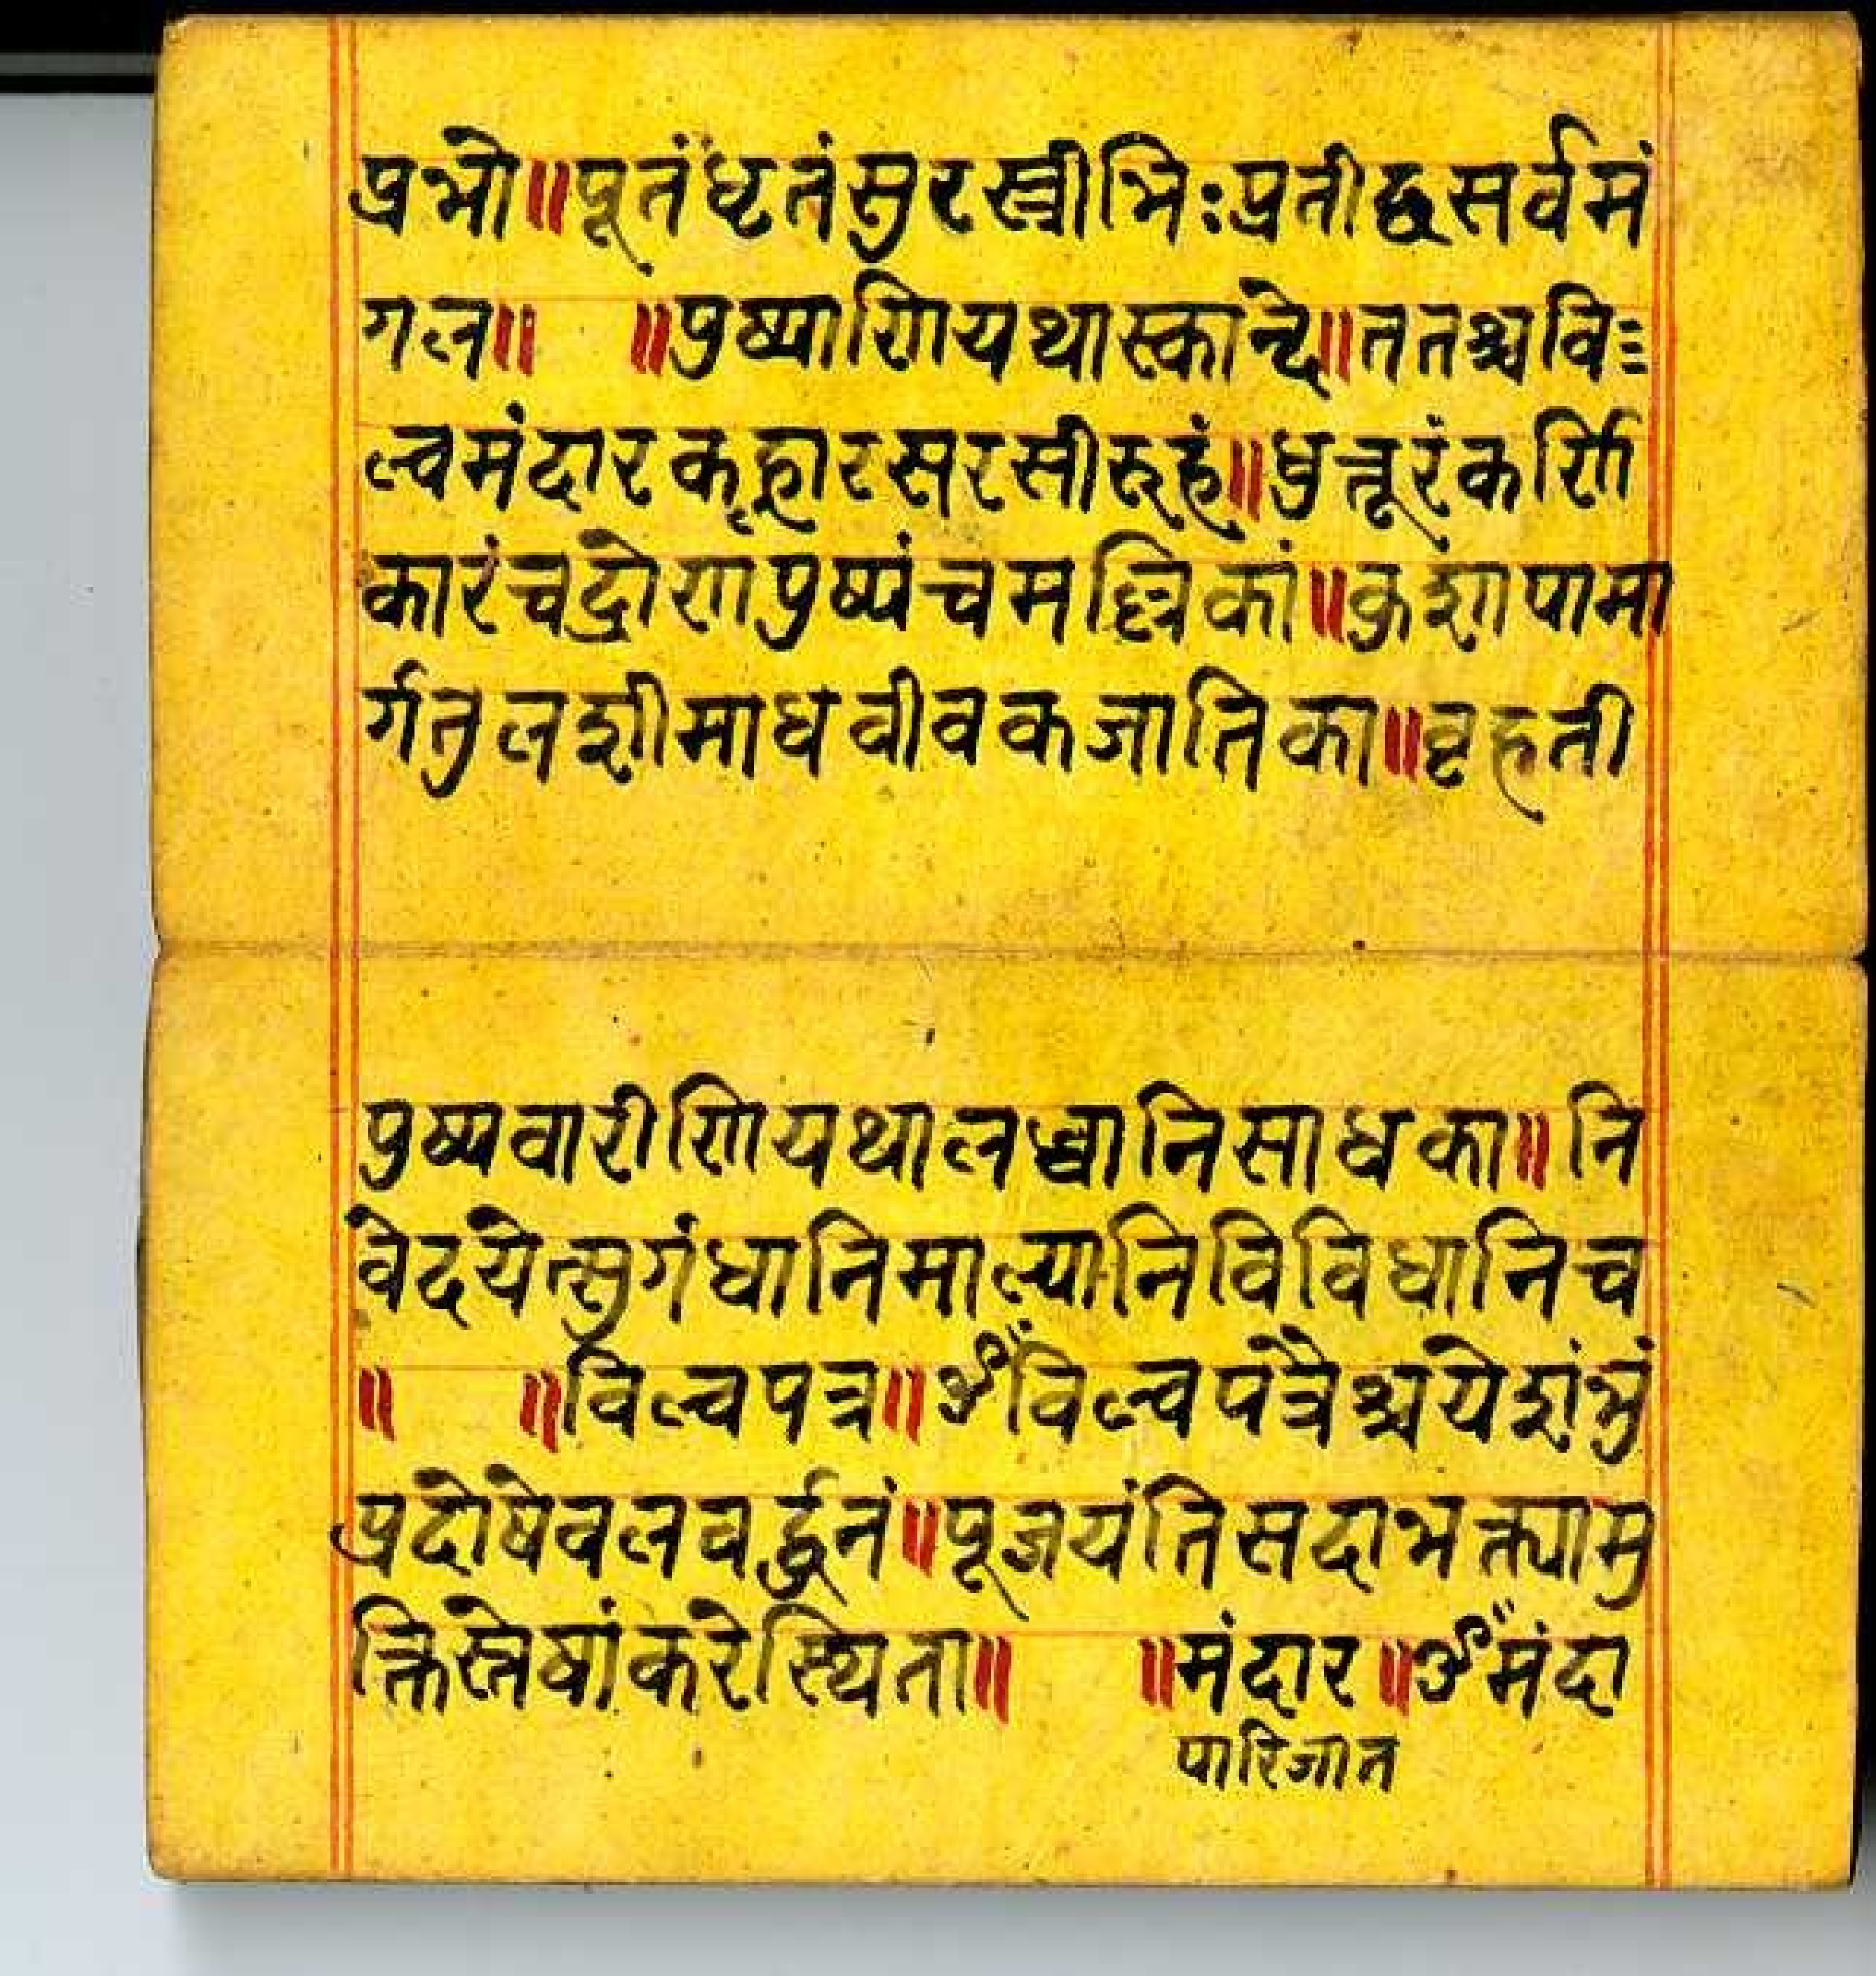 प्रभो॥पूतंधृतंसुरस्त्रीभिःप्रतीद्वसर्वमं
गल॥ ॥पुष्पाणियथास्कान्दे॥ततश्चवि
ल्वमंदारकृह्लारसरसीरुहं॥धुत्तूरंकर्णि
कारंचद्रोणपुष्पंचमल्लिकां॥कुशापामा
र्गतुलशीमाधवीवकजातिका॥वृहती
पुष्पवारीणियथालब्धानिसाधका॥नि
वेदयेत्सुगंधानिमाल्यानिविविधानिच
॥ ॥विल्वपत्र॥ॐविल्वपत्रैश्चयेशंभुं
प्रदोषेवलवर्द्धनं॥पूजयंतिसदाभक्त्यामु
क्तिस्तेषांकरेस्थिता॥ ॥मंदार॥ॐमंदा
पारिजात